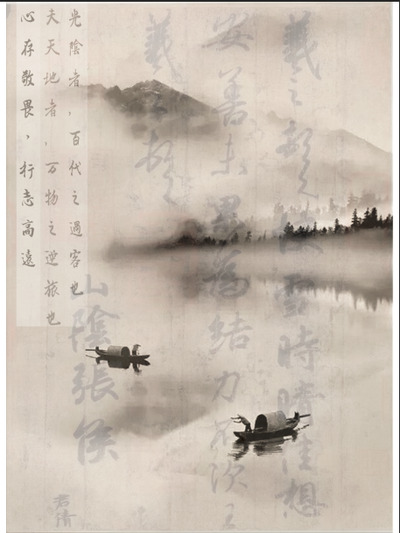 羲之頓首快雪時晴佳想
安善未果為結力不次王
羲之頓首
山陰張侯
光陰者，百代之過客也
夫天地者，万物之逆旅也
心存敬畏，行志高遠